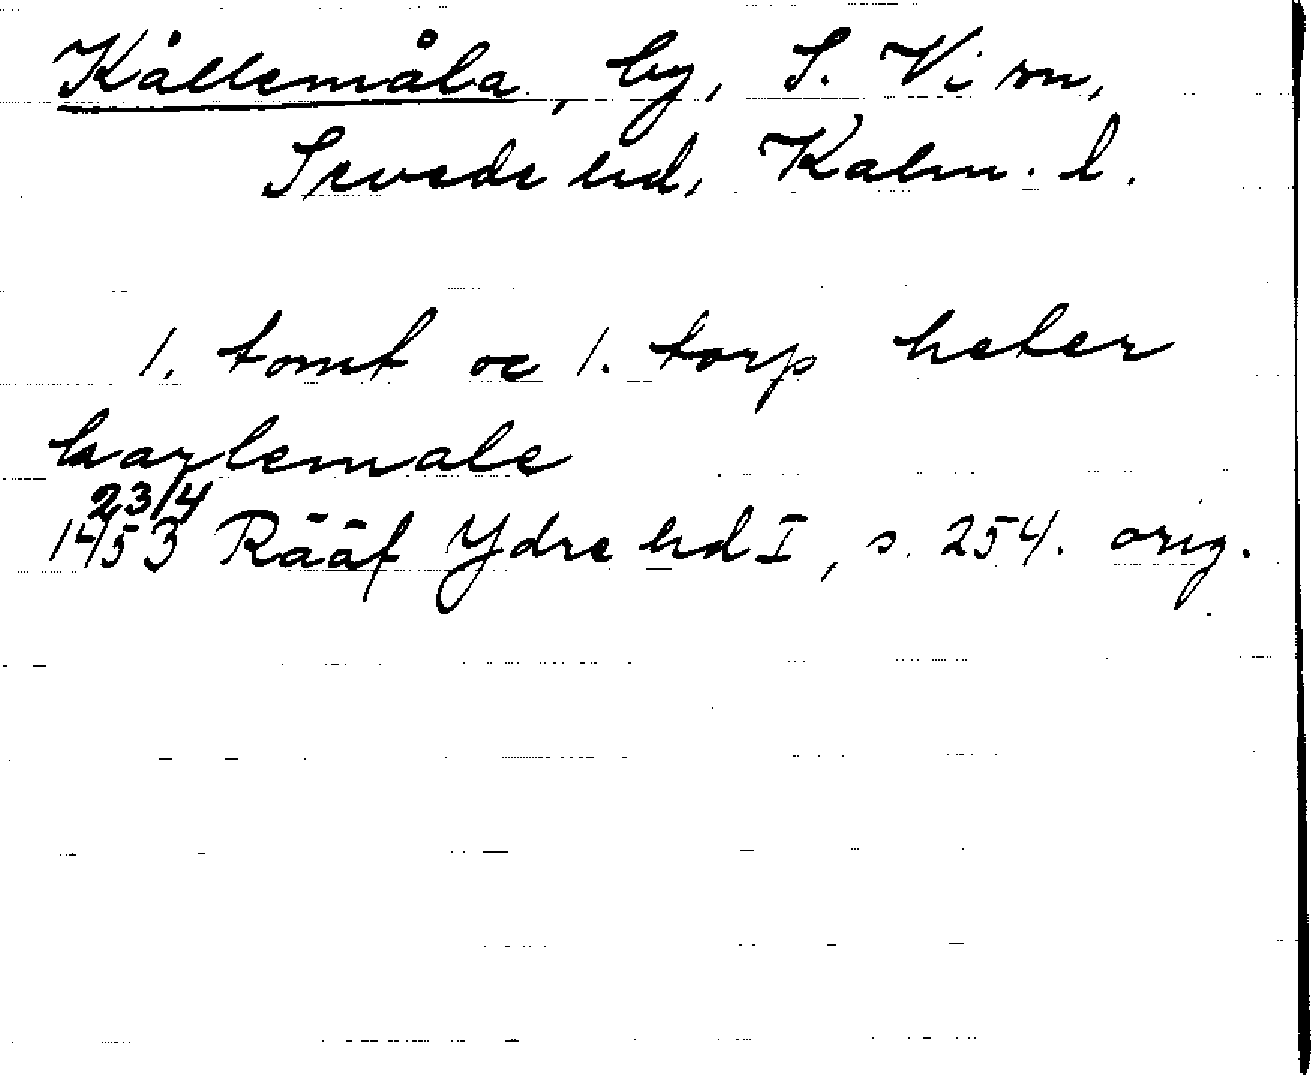 Kållemåla, by, S. Vi sn,
Sevede hd, Kalm. l.
1. tomt oc 1. torp heter
karlemale
23/4
1453 Rääf Ydre hd I, s. 254. orig.